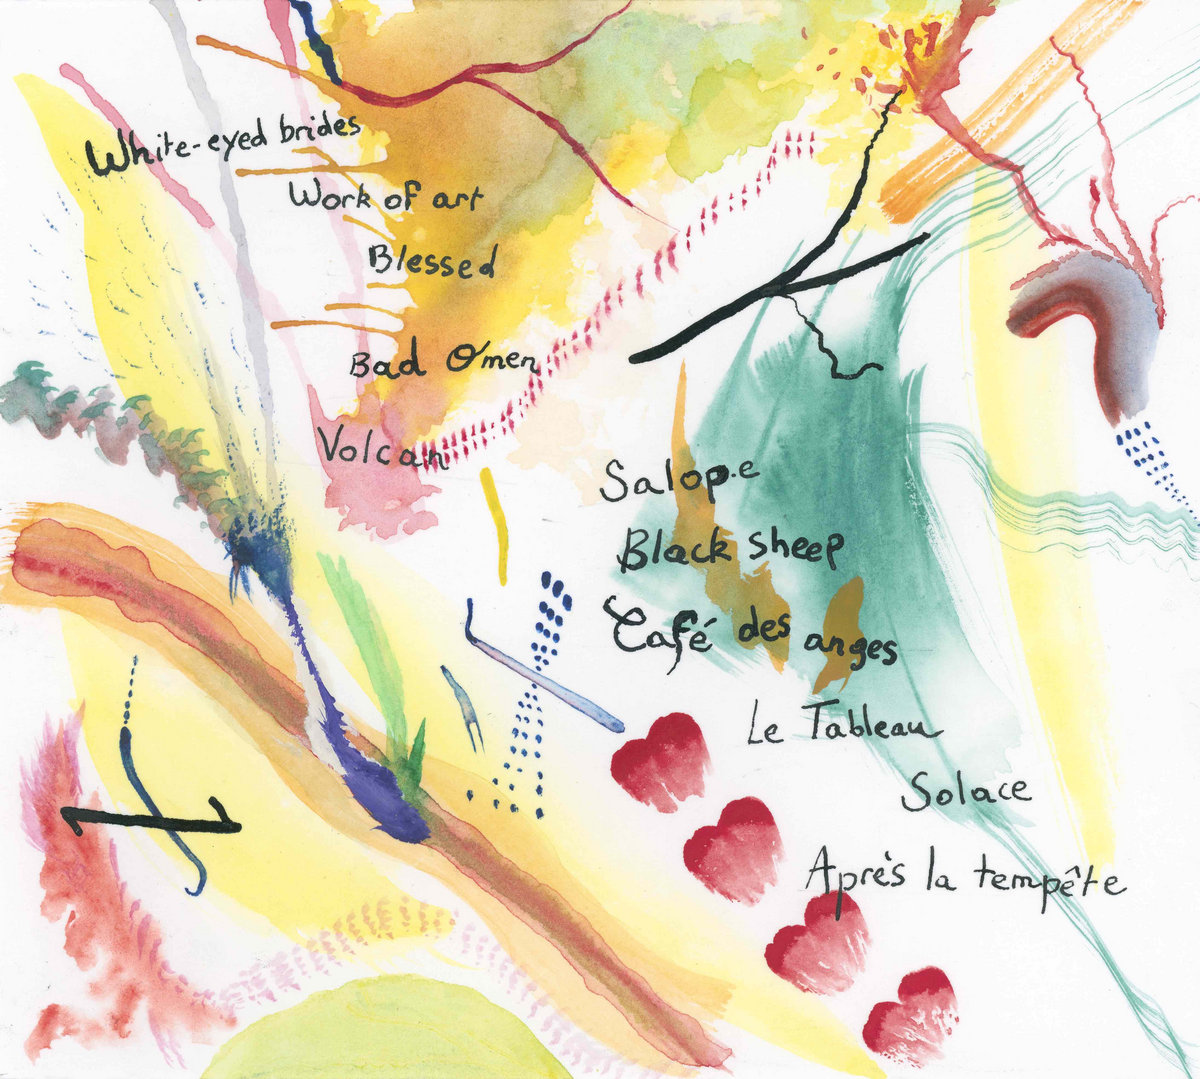 White-eyed brides
Work of art
Blessed
Bad Omen
Volcan
Salope
Black sheep
Café des anges
Le Tableau
Solace
Après la tempête